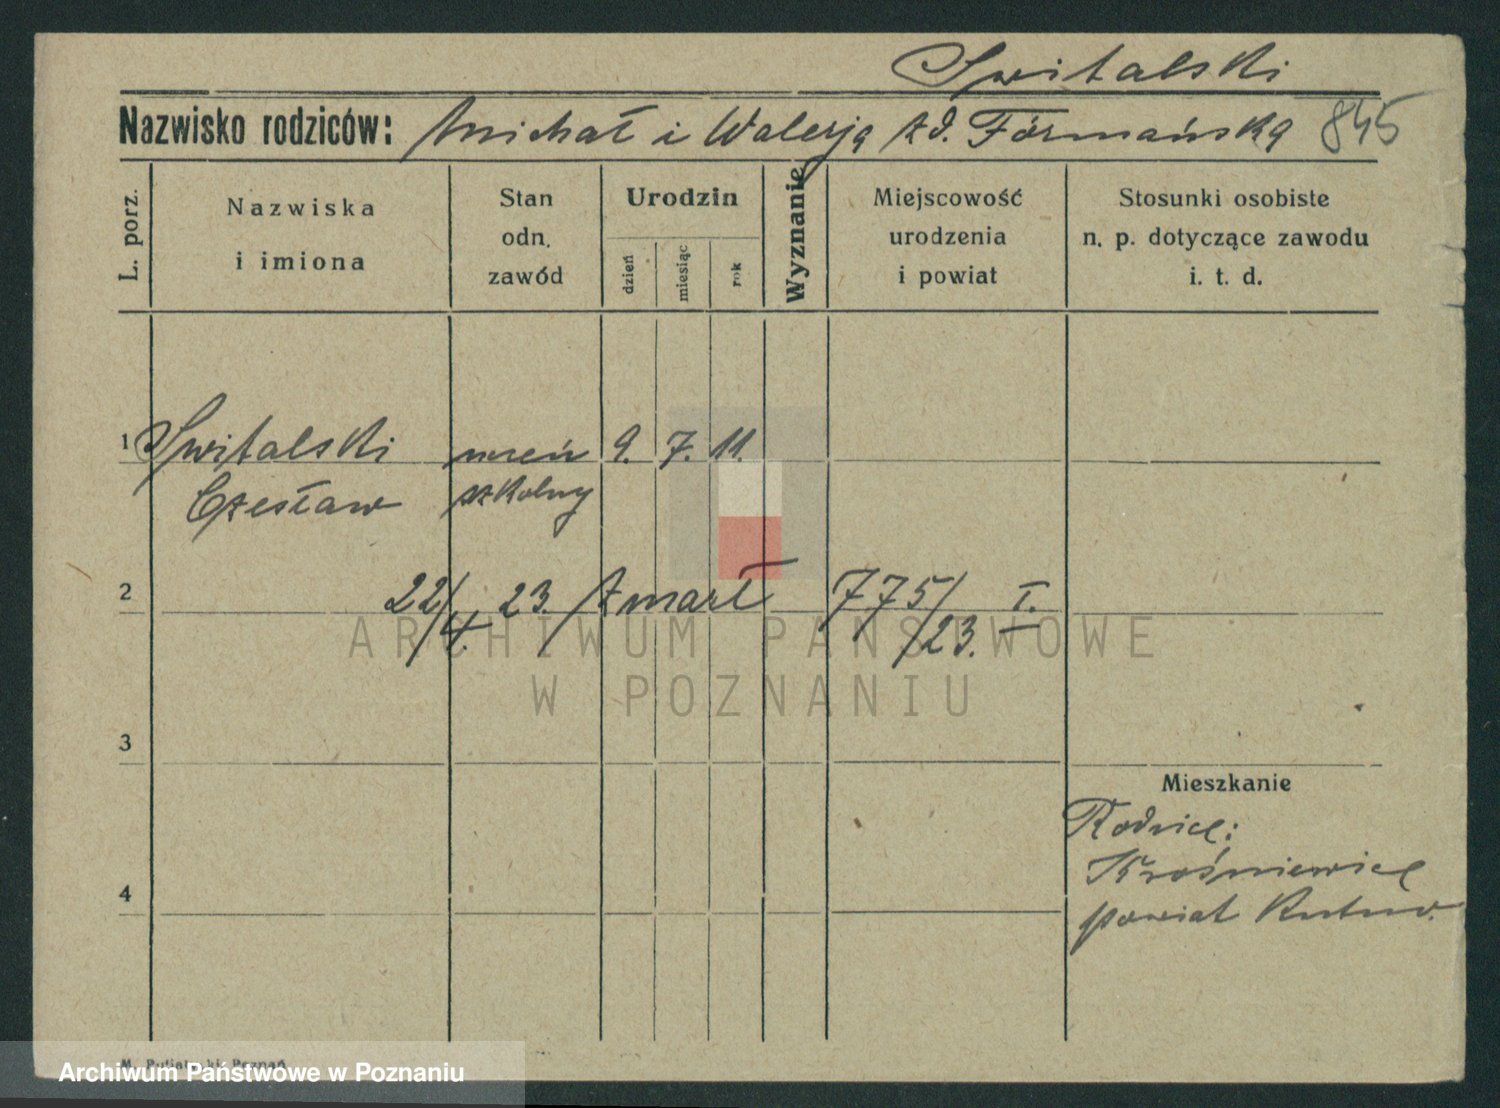 Switalski
Nazwisko rodziców: Michał i Walerja zd. Fórmańska 845
L. porz.
Nazwiska
i imiona
Stan
odn.
zawód
Urodzin
dzień
miesiąc
rok
Wyznanie
Miejscowość
urodzenia
i powiat
Stosunki osobiste
n. p. dotyczące zawodu
i. t. d.
1 Switalski uczeń 9. 7. 11.
Czesław szkolny
2 22/4. 23. zmarł 775/23. I.
ARCHIWUM PAŃSTWOWE
W POZNANIU
3
Mieszkanie
Rodzice:
Krośniewice
4
powiat Kutno.
Poznań
Archiwum Państwowe w Poznaniu